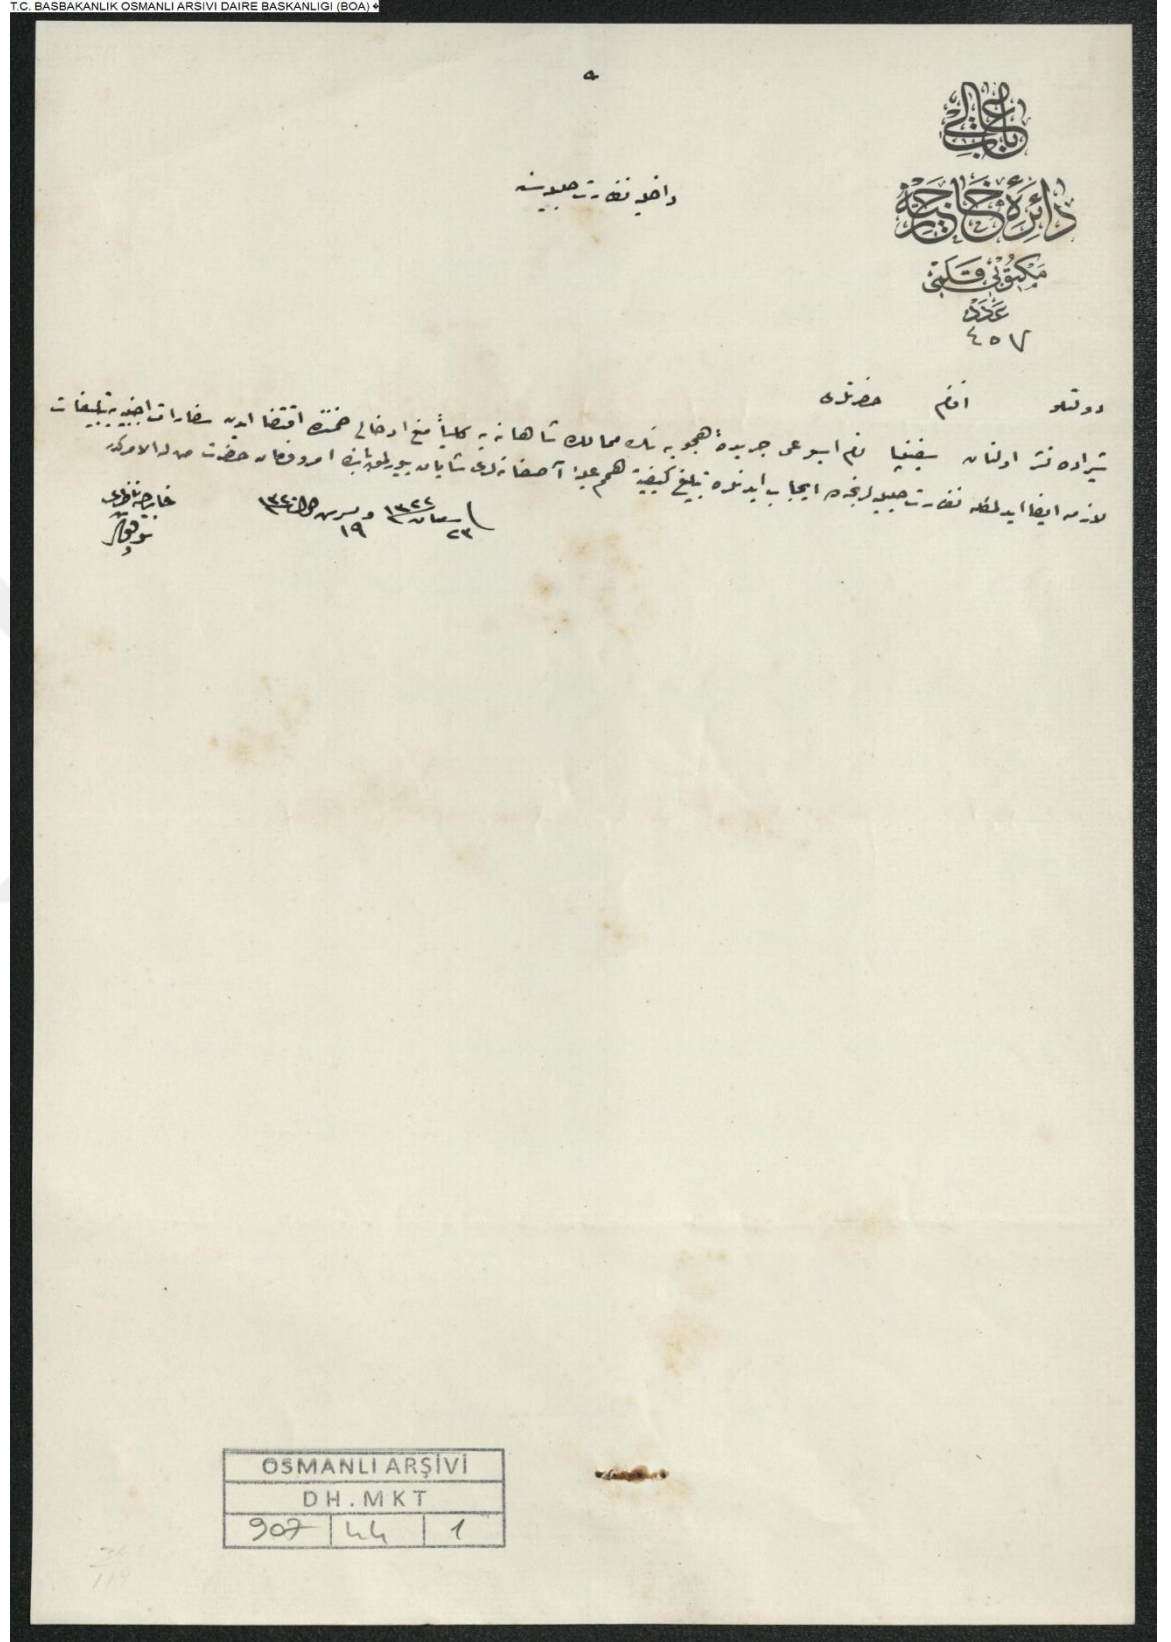 T.C. BASBAKANLIK OSMANLI ARSIVI DAIRE BASKANLIGI (BOA)
باب عالی
دائرهٔ خارجیه
مکتوبی قلمی
عدد
٤٥٧
داخلیه نظارت جلیله‌سنه
دولتلو افندم حضرتلری
تیراده نشر اولنان نام اسبوعی جریدهٔ هجویه نك ممالك شاهانه یه کلیاً منع ادخالی ضمننده اقتضا ایدن سفارات اجنبیه یه تبلیغات
لازمه ایفا ایدلمکله نظارت جلیله لرنجه ده ایجاب ایدنلره تبلیغ کیفیته همم علیهٔ آصفانه لری شایان بیورلمق بابنده امر و فرمان حضرت من له الامرکدر
فی ٢٣ شعبان ١٣٢٢ و فی ١٩ تشرین اول ١٣٢٠
خارجیه ناظری
توفیق
OSMANLI ARŞİVİ
DH.MKT
907 44 1